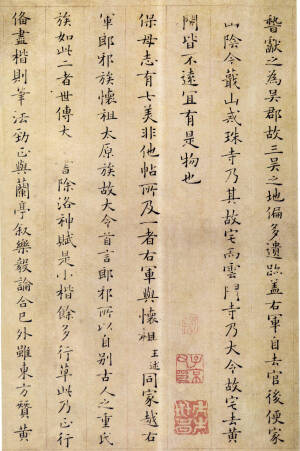 稽獻之為吳郡故三吳之地偏多遺跡蓋右軍自去官後便家
山陰今蕺山戒珠寺乃其故宅而雲門寺乃大令故宅去黃
閍皆不遠宜有是物也
保母志有七美非他帖所及一者右軍與懷祖王述同家越右
軍郎邪族懷祖太原族故大令首言郎邪所以自別古人之重氏
族如此二者世傳大除洛神賦是小楷餘多行草此乃正行
俻盡楷則筆法勁正與蘭亭敘樂毅論合已外雖東方贊黃